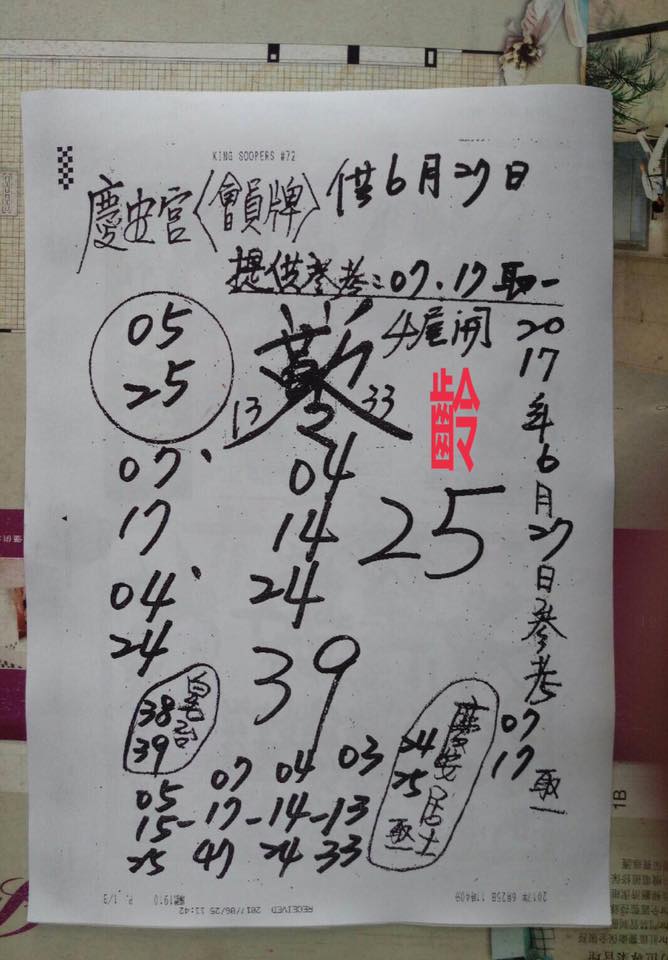 KING SOOPERS #72
慶安宮〈會員牌〉供6月27日
提供參考:07.17取一
4尾開
05
25
13
33
齡
07、
17
04
14
25
04、
24
24
39
38
39
2017年6月27日參考
07
17
取一
慶安居士
24
25
取一
07 04 03
05
15-17-14-13
25 47 24 33
P. 1/3
RECEIVED 2017/06/25 11:42
2017年 6月25日 11時40分
1B